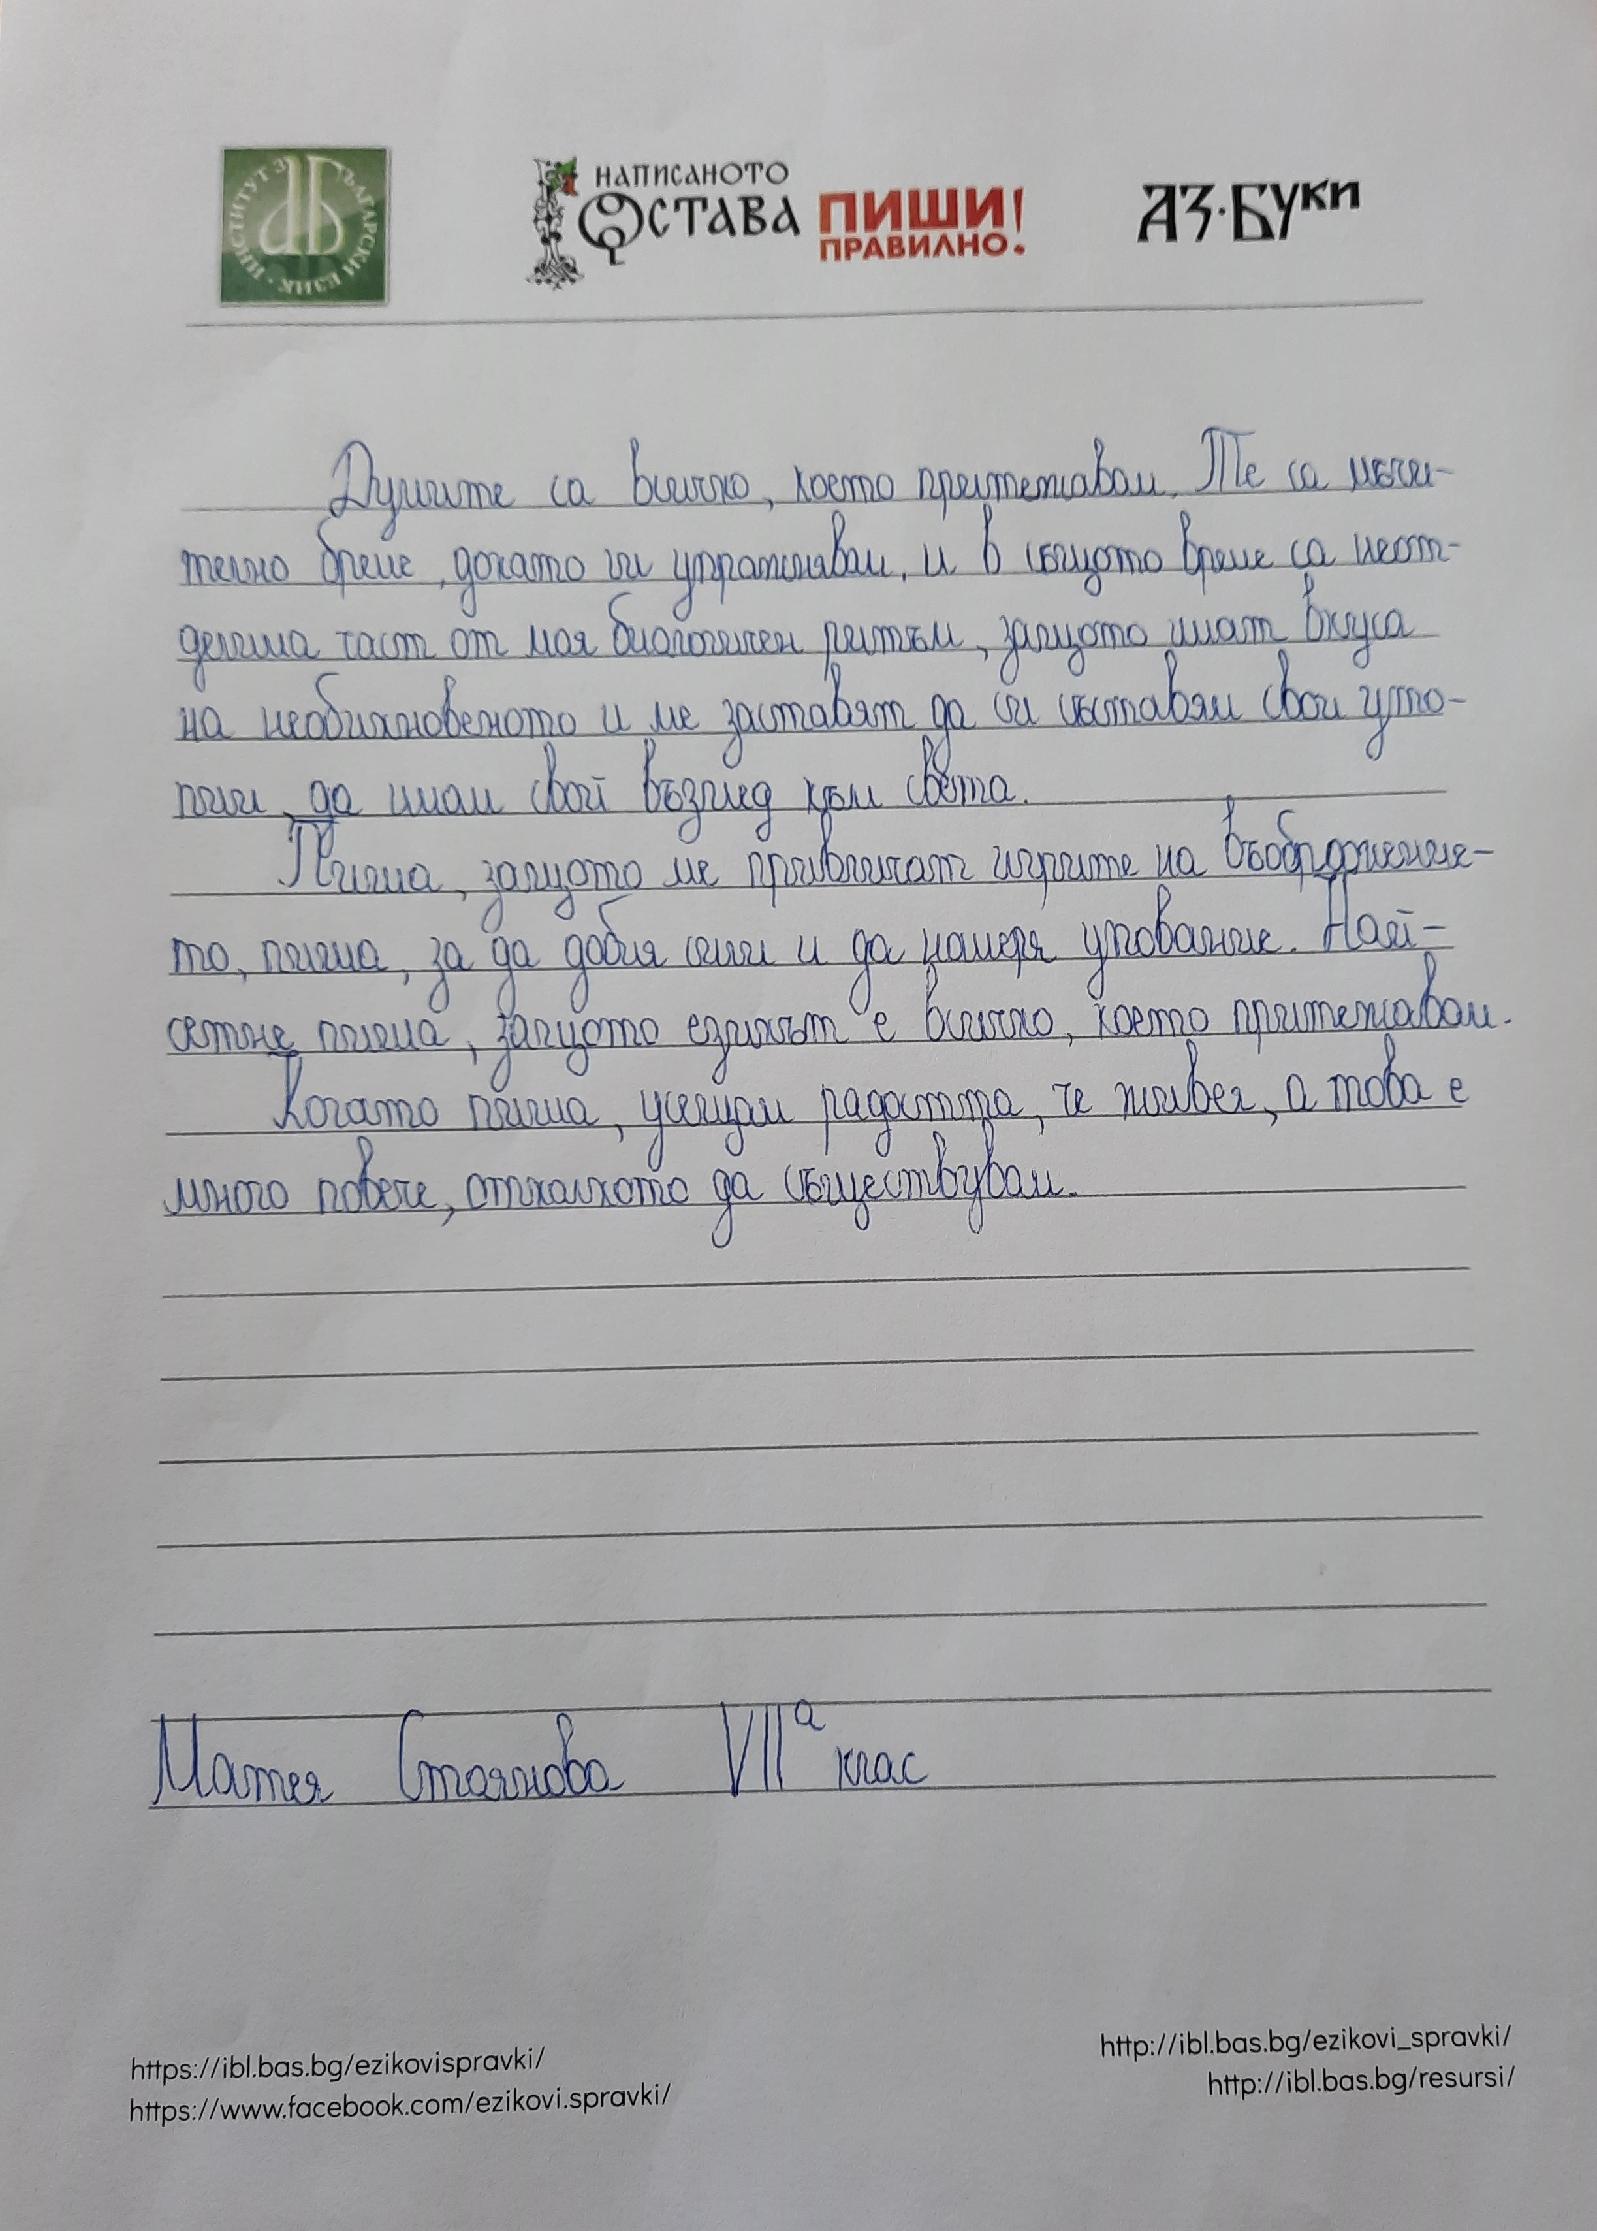 ИНСТИТУТ ЗА БЪЛГАРСКИ ЕЗИК
НАПИСАНОТО
ОСТАВА
ПИШИ
ПРАВИЛНО!
АЗ·БУКИ
Думите са всичко, което притежавам. Те са мъчи-
телно бреме, докато ги упражнявам, и в същото време са неот-
делима част от моя биологичен ритъм, защото имат вкуса
на необикновеното и ме заставят да си съставям свои уто-
пии, да имам свой възглед към света.
Пиша, защото ме привличат игрите на въображение-
то, пиша, за да добия сили и да намеря упование. Най-
сетне пиша, защото езикът е всичко, което притежавам.
Когато пиша, усещам радостта, че живея, а това е
много повече, отколкото да съществувам.
Матея Стоянова VIIа клас
https://ibl.bas.bg/ezikovispravki/
https://www.facebook.com/ezikovi.spravki/
http://ibl.bas.bg/ezikovi_spravki/
http://ibl.bas.bg/resursi/